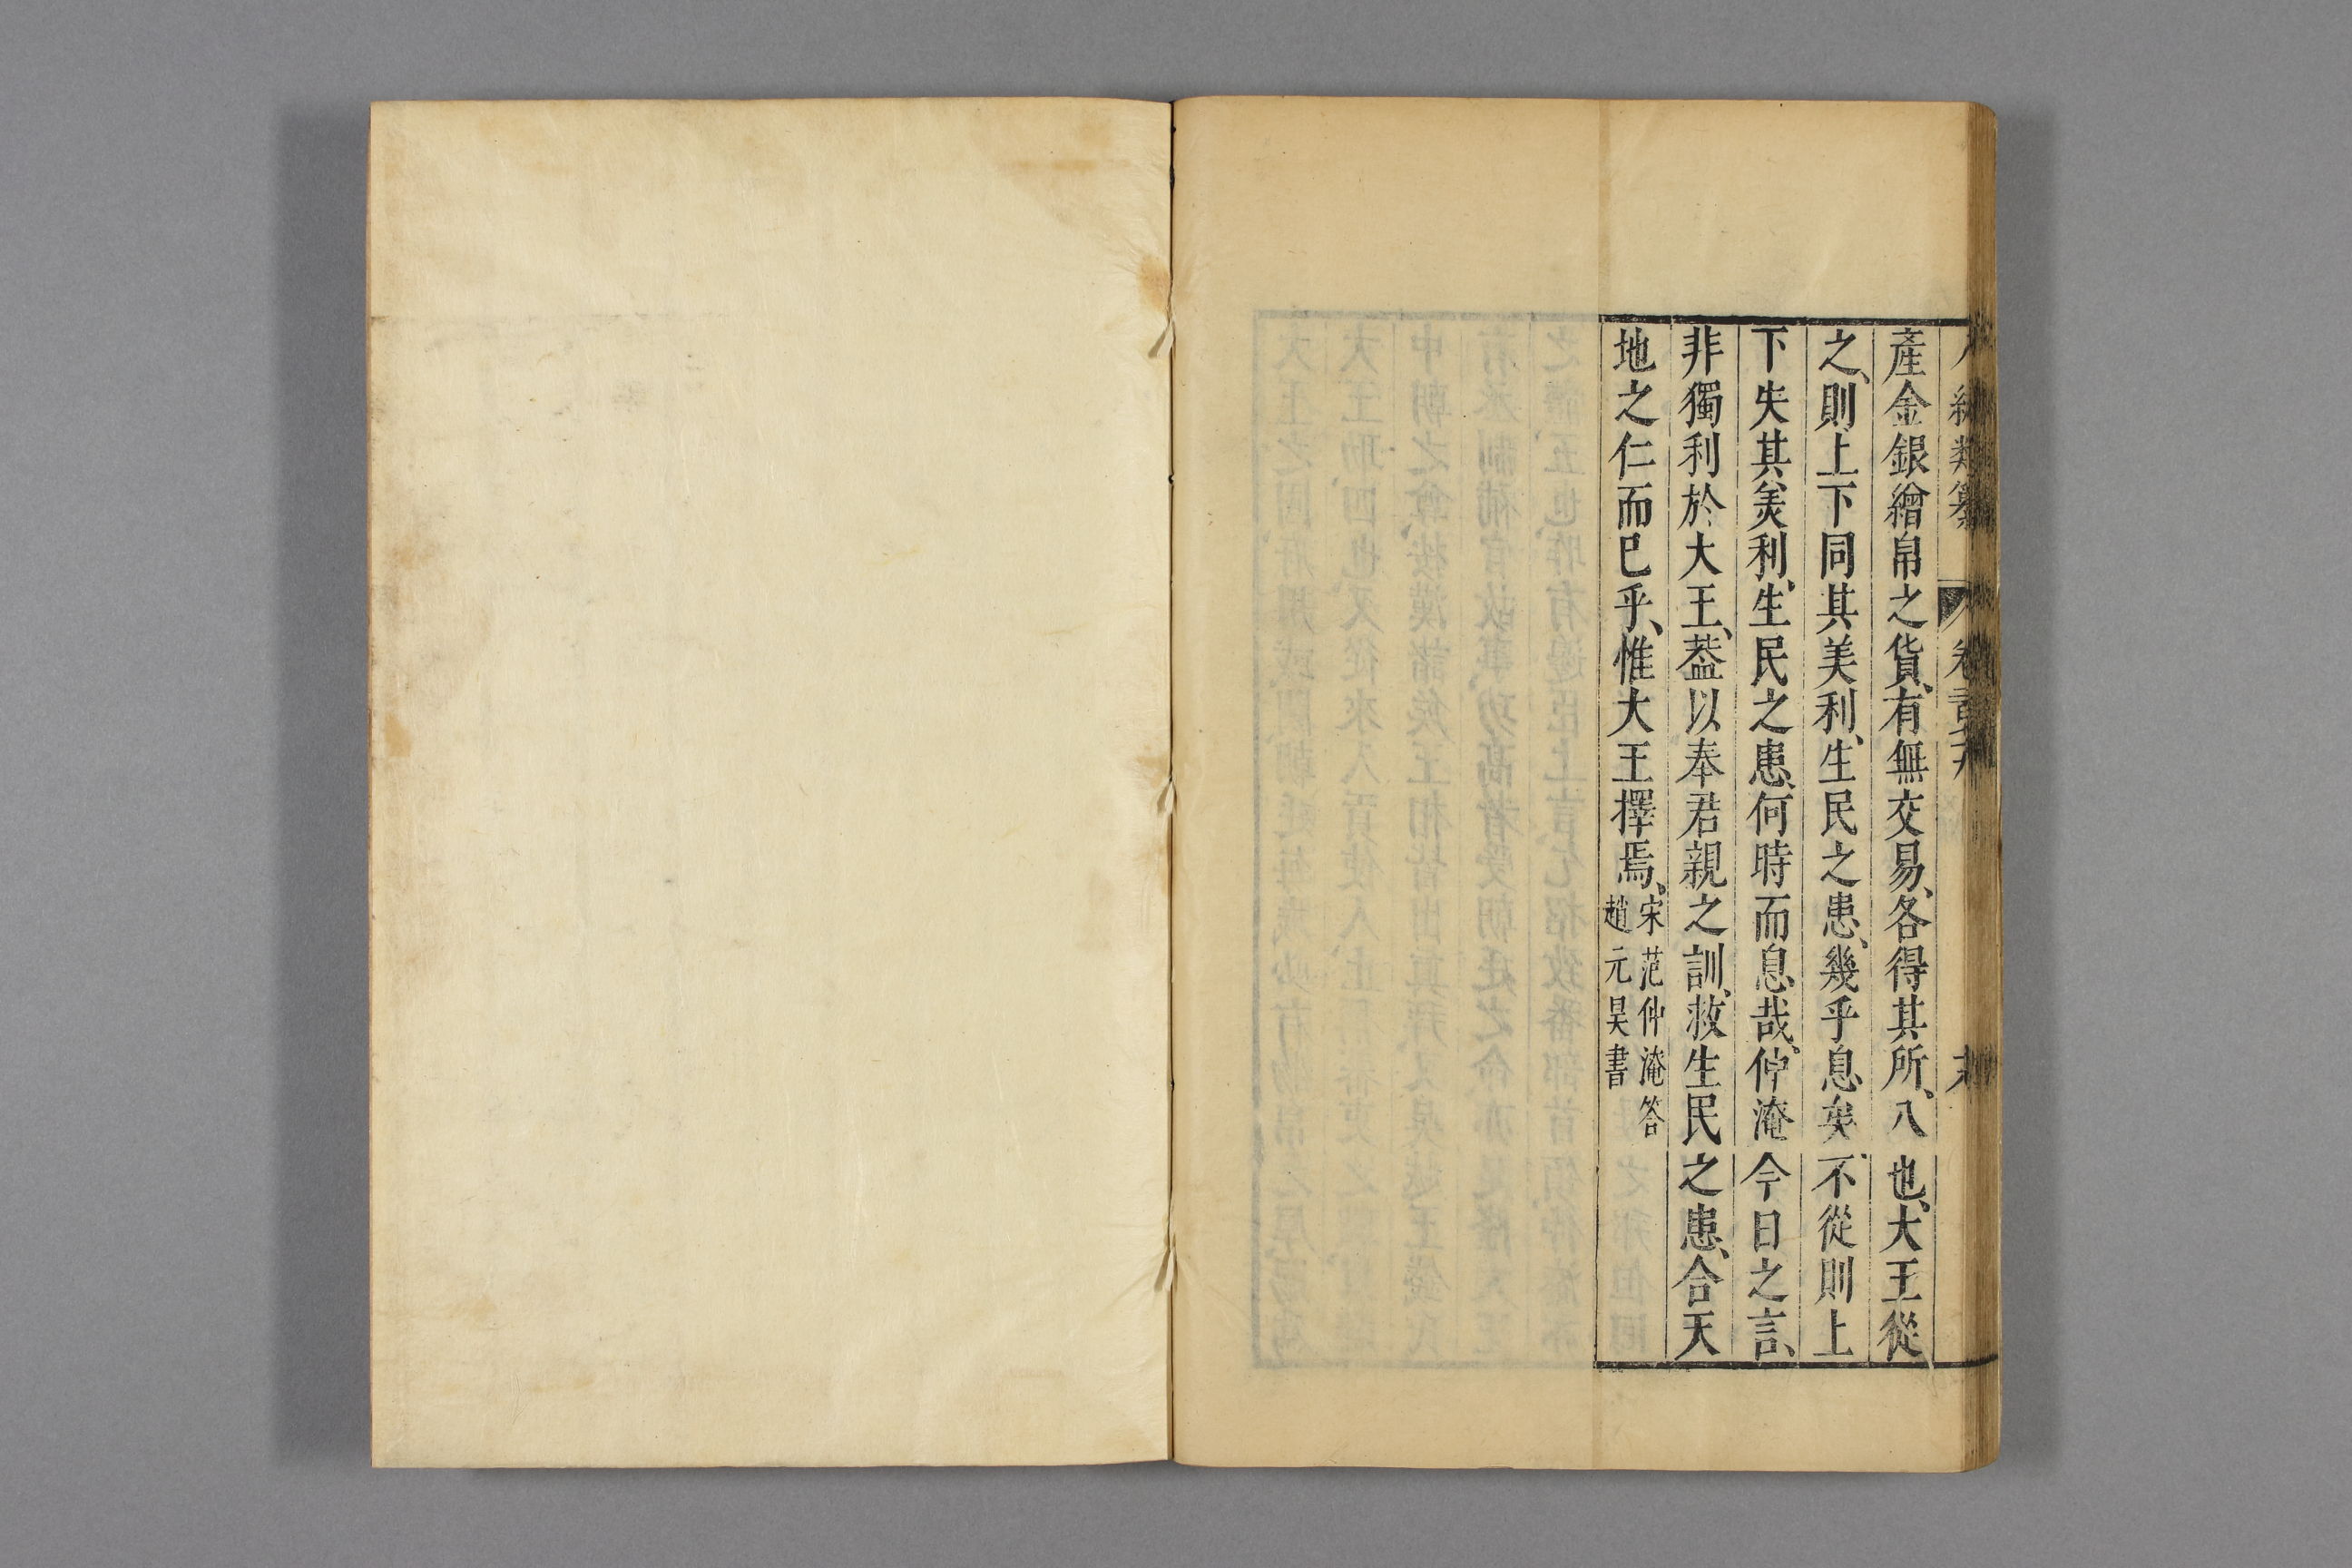 產金銀繒帛之貨、有無交易、各得其所、八也、大王從
之、則上下同其美利、生民之患、幾乎息矣、不從則上
下失其美利、生民之患、何時而息哉、仲淹今日之言、
非獨利於大王、蓋以奉君親之訓、救生民之患、合天
地之仁而已乎、惟大王擇焉、宋范仲淹答
趙元昊書